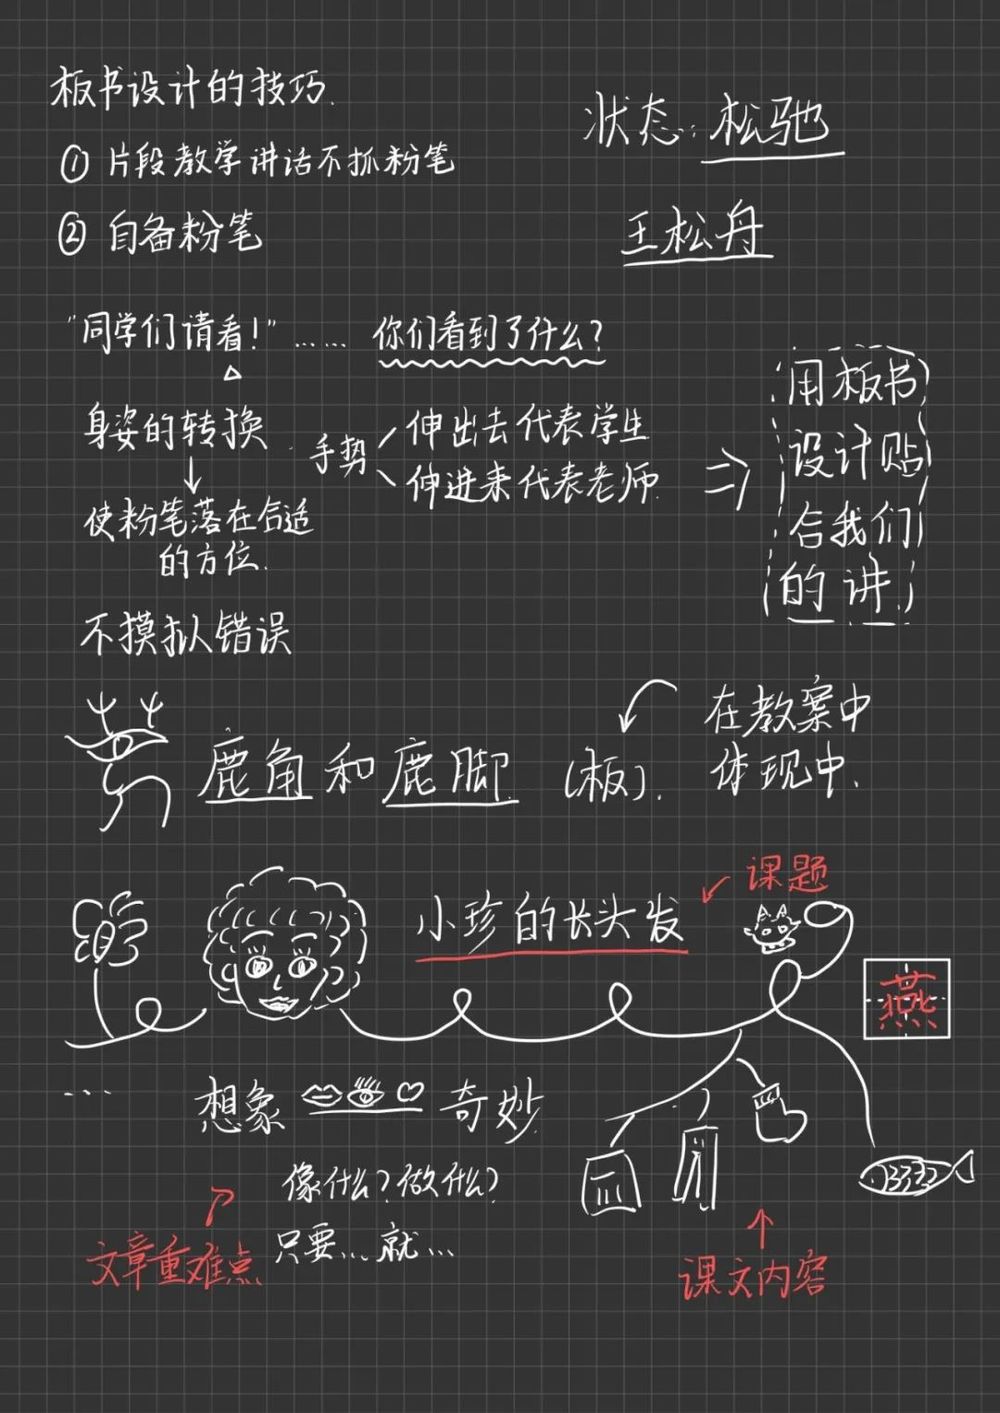 板书设计的技巧.
状态:松驰
① 片段教学讲话不抓粉笔
② 自备粉笔
王松舟
"同学们请看!"…… 你们看到了什么?
身姿的转换
使粉笔落在合适
的方位.
手势
伸出去代表学生
伸进来代表老师.
用板书
设计贴
合我们
的讲
不摸拟错误
鹿角和鹿脚 (板).
在教案中
体现中.
小珍的长头发
课题
燕
...
想象 奇妙
像什么?做什么?
只要...就...
文章重难点
课文内容